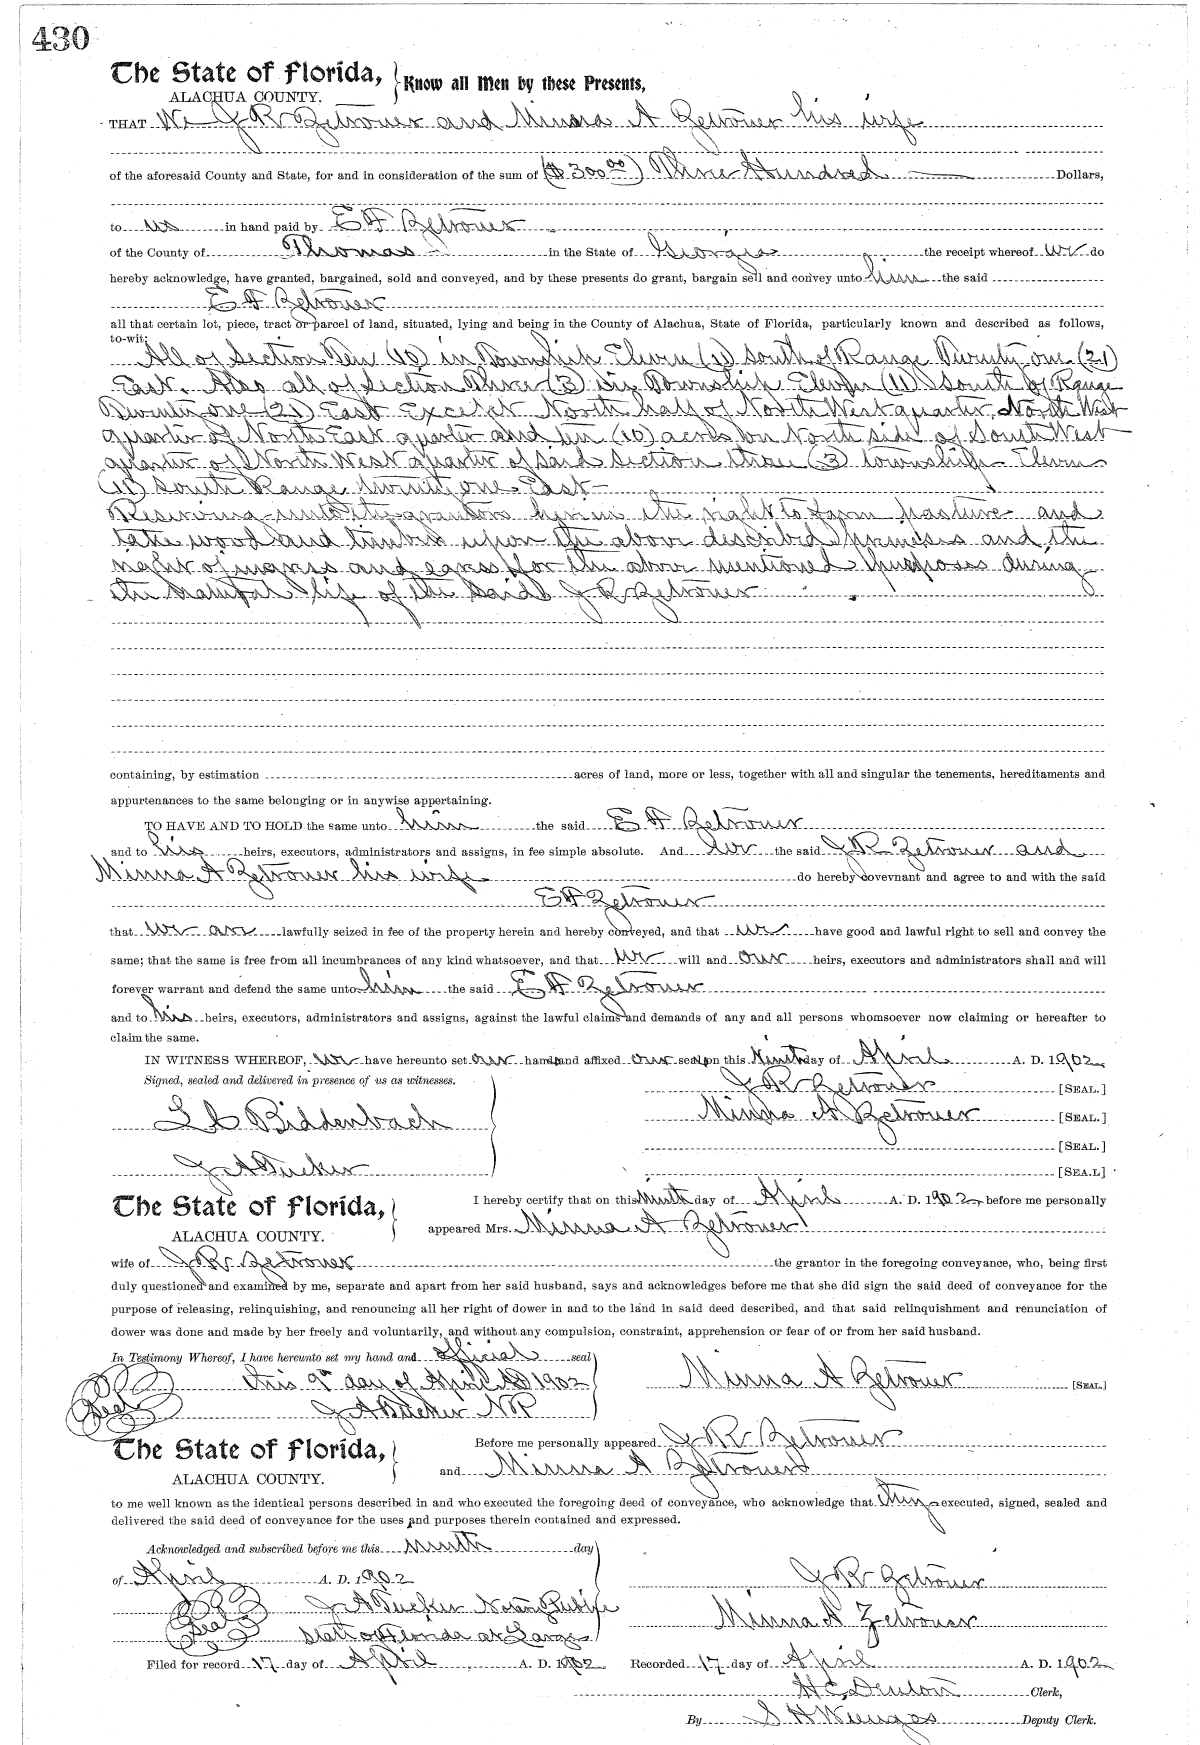 430
The State of Florida, Know all Men by these Presents,
ALACHUA COUNTY.
THAT We J R Zetrouer and Minna A Zetrouer his wife
of the aforesaid County and State, for and in consideration of the sum of ($300.00) Three Hundred Dollars,
to us in hand paid by E F Zetrouer
of the County of Thomas in the State of Georgia the receipt whereof we do
hereby acknowledge, have granted, bargained, sold and conveyed, and by these presents do grant, bargain sell and convey unto him the said
E F Zetrouer
all that certain lot, piece, tract or parcel of land, situated, lying and being in the County of Alachua, State of Florida, particularly known and described as follows,
to-wit:
All of Section Ten (10) in Township Eleven (11) South of Range Twenty one (21)
East. Also all of Section Three (3) in Township Eleven (11) South of Range
Twenty one (21) East Except North half of North West quarter, North West
quarter of North East quarter and ten (10) acres on North side of South West
quarter of North West quarter of said Section three (3) township Eleven
(11) South Range twenty one East
Reserving unto the grantors herein the right to farm pasture and
take wood and timber upon the above described premises and the
right of ingress and egress for the above mentioned purposes during
the natural life of the said J R Zetrouer
containing, by estimation acres of land, more or less, together with all and singular the tenements, hereditaments and
appurtenances to the same belonging or in anywise appertaining.
TO HAVE AND TO HOLD the same unto him the said E F Zetrouer
and to his heirs, executors, administrators and assigns, in fee simple absolute. And we the said J R Zetrouer and
Minna A Zetrouer his wife do hereby covevnant and agree to and with the said
E F Zetrouer
that we are lawfully seized in fee of the property herein and hereby conveyed, and that we have good and lawful right to sell and convey the
same; that the same is free from all incumbrances of any kind whatsoever, and that we will and our heirs, executors and administrators shall and will
forever warrant and defend the same unto him the said E F Zetrouer
and to his heirs, executors, administrators and assigns, against the lawful claims and demands of any and all persons whomsoever now claiming or hereafter to
claim the same.
IN WITNESS WHEREOF, we have hereunto set our hands and affixed our seals on this Ninth day of April A. D. 1902
Signed, sealed and delivered in presence of us as witnesses. J R Zetrouer [SEAL.]
L C Biddenbach Minna A Zetrouer [SEAL.]
[SEAL.]
J A Tucker [SEAL]
The State of Florida, I hereby certify that on this ninth day of April A. D. 1902 before me personally
ALACHUA COUNTY. appeared Mrs. Minna A Zetrouer
wife of J R Zetrouer the grantor in the foregoing conveyance, who, being first
duly questioned and examined by me, separate and apart from her said husband, says and acknowledges before me that she did sign the said deed of conveyance for the
purpose of releasing, relinquishing, and renouncing all her right of dower in and to the land in said deed described, and that said relinquishment and renunciation of
dower was done and made by her freely and voluntarily, and without any compulsion, constraint, apprehension or fear of or from her said husband.
In Testimony Whereof, I have hereunto set my hand and official seal
Seal this 9" day of April AD 1902 Minna A Zetrouer [SEAL.]
J A Tucker NP
The State of Florida, Before me personally appeared J R Zetrouer
ALACHUA COUNTY. and Minna A Zetrouer
to me well known as the identical persons described in and who executed the foregoing deed of conveyance, who acknowledge that they executed, signed, sealed and
delivered the said deed of conveyance for the uses and purposes therein contained and expressed.
Acknowledged and subscribed before me this ninth day
of April A. D. 1902 J R Zetrouer
Seal J A Tucker Notary Public Minna A Zetrouer
State of Florida at Large
Filed for record 17 day of April A. D. 1902 Recorded 17 day of April A. D. 1902
H C Denton Clerk,
By S H Wienges Deputy Clerk.